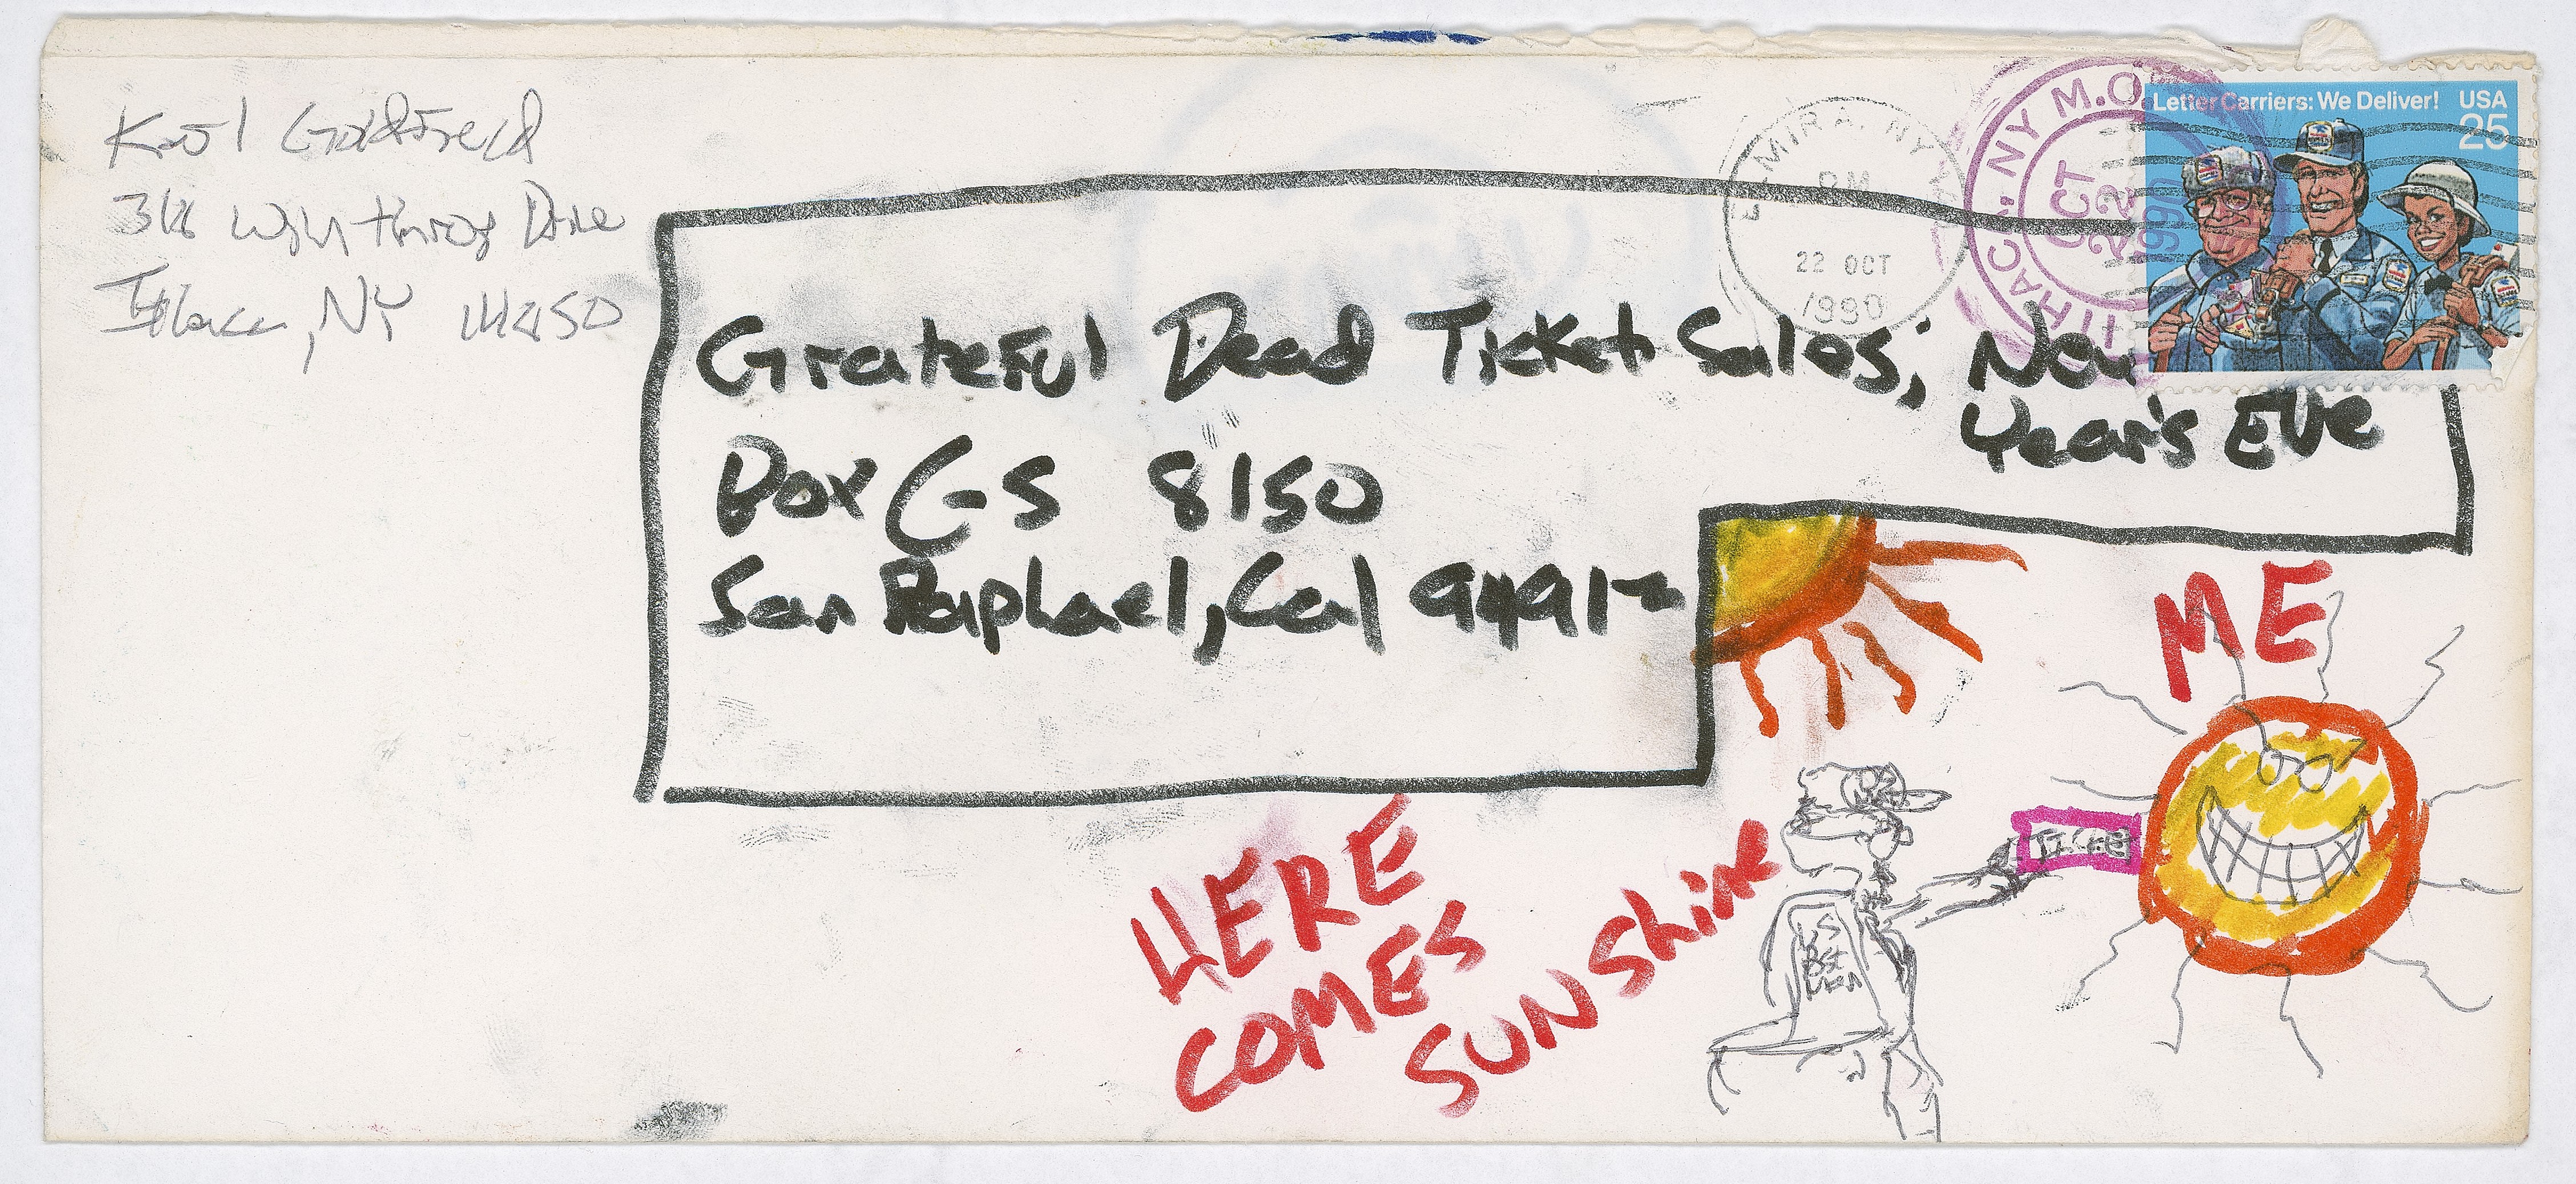 Goldfield
Drive
Ithaca, NY 14850
ELMIRA, NY
PM
22 OCT
1990
ITHACA, NY M.O.
OCT
22
1990
Letter Carriers: We Deliver! USA
25
Grateful Dead Ticket Sales; New
Year's Eve
Box GS 8150
San Raphael, Cal 94912
ME
HERE
COMES
SUNShine